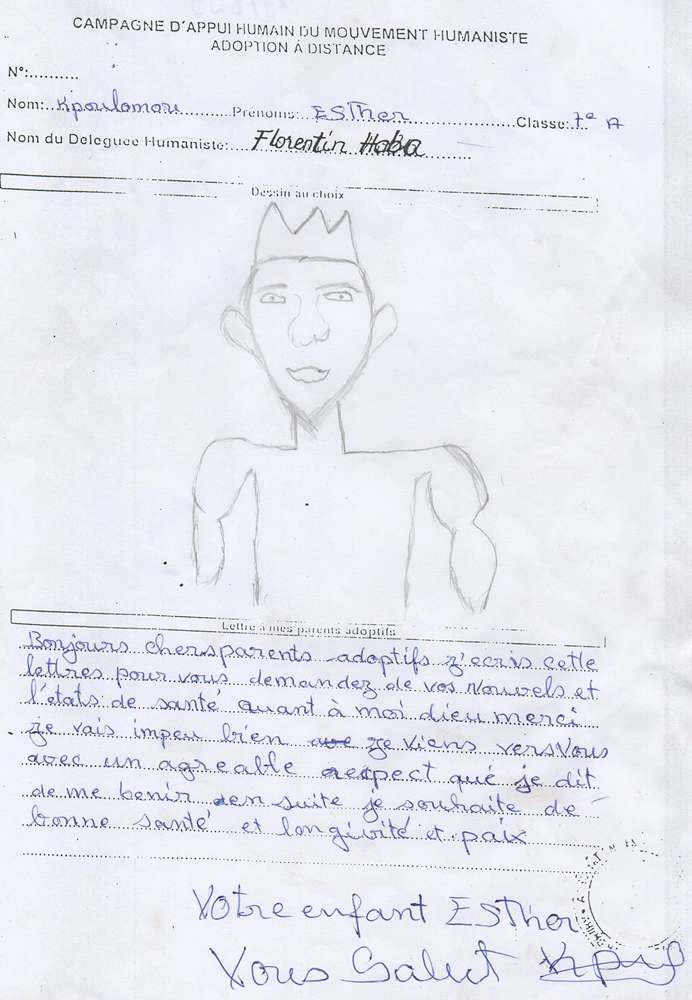 CAMPAGNE D'APPUI HUMAIN DU MOUVEMENT HUMANISTE
ADOPTION A DISTANCE
N°:..........
Nom: Kpoulomou Prénoms: ESTher Classe: 7e A
Nom du Deleguee Humaniste: Florentin Haba
Dessin au choix
Lettre à mes parents adoptifs
Bonjours chers parents adoptifs j'ecris cette
lettres pour vous demandez de vos nouvels et
l'états de santé quant à moi dieu merci
je vais impeu bien je viens vers vous
avec un agreable respect que je dit
de me benir en suite je souhaite de
bonne santé et longivité et paix
Votre enfant ESTher
Vous Salut